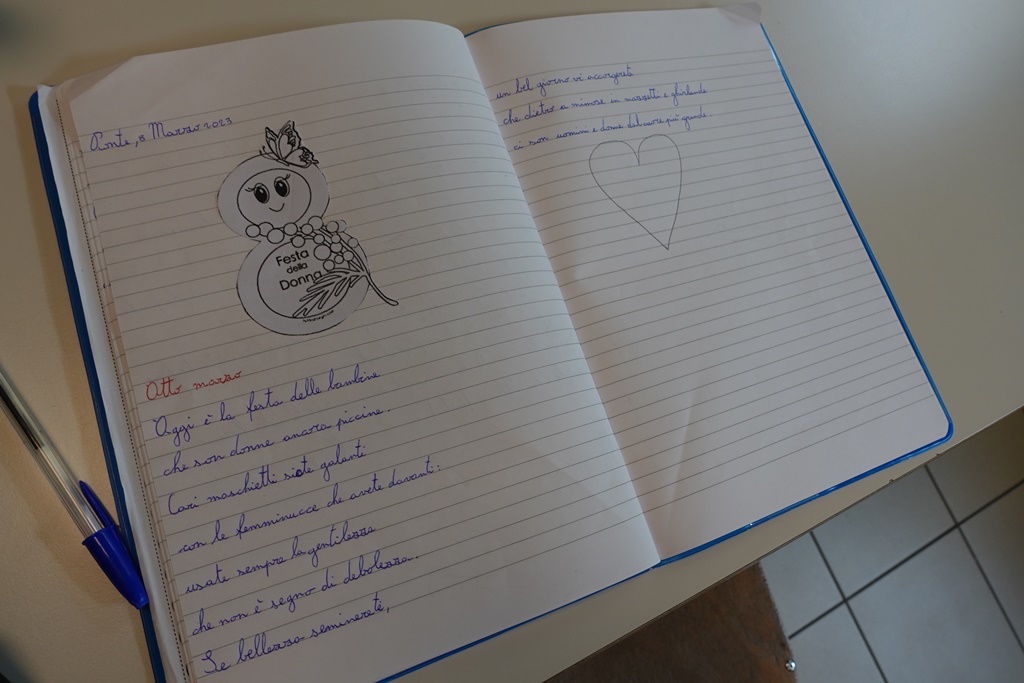 Ponte, 8 Marzo 2023
Festa
della
Donna
Otto marzo
Oggi è la festa delle bambine
che son donne ancora piccine.
Cari maschietti siate galanti
con le femminucce che avete davanti:
usate sempre la gentilezza
che non è segno di debolezza.
Se bellezza seminerete,
un bel giorno vi accorgerete
che dietro a mimose in mazzetti e ghirlande
ci son uomini e donne dal cuore più grande